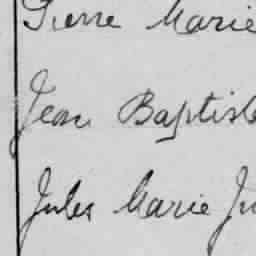 Pierre Marie
Jean Baptiste
Jules Marie Ju